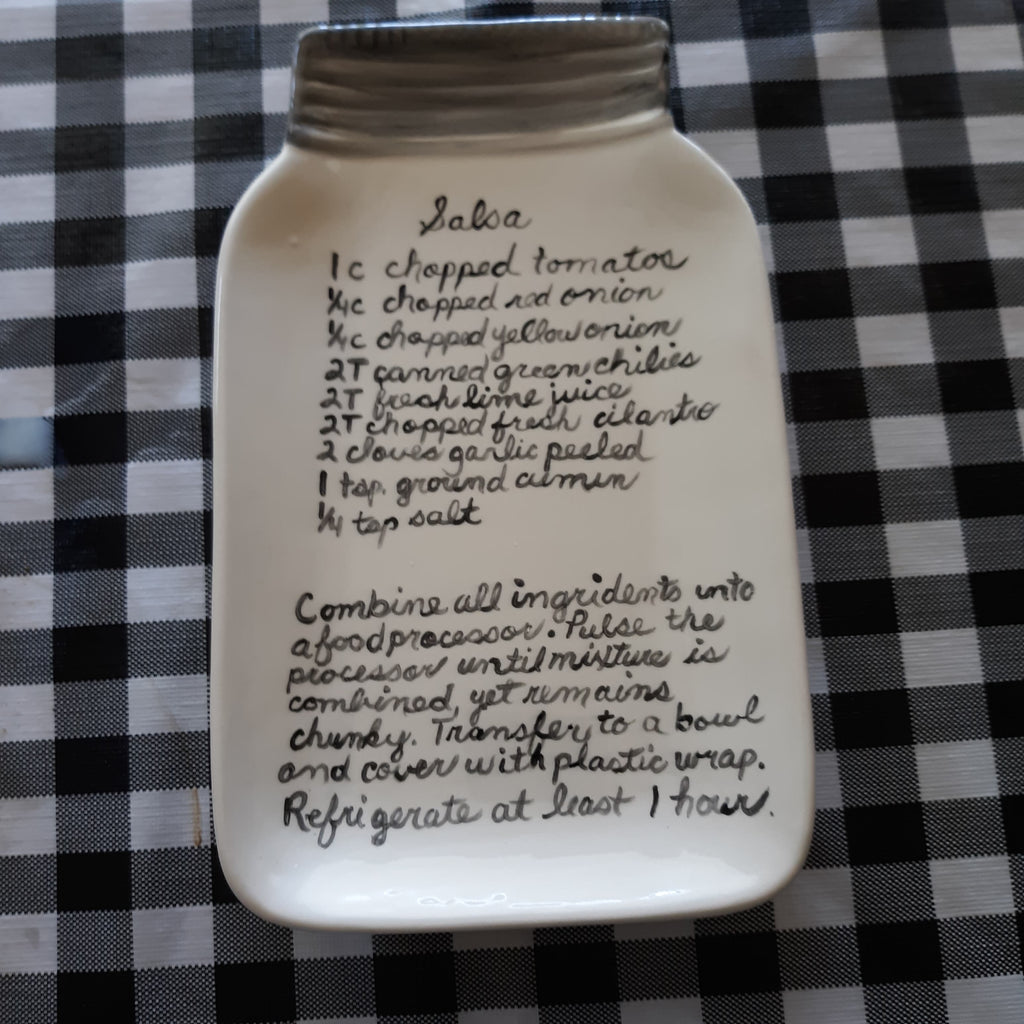 Salsa
1 c chopped tomatos
1/4 c chopped red onion
1/4 c chopped yellow onion
2T canned green chilies
2T fresh lime juice
2T chopped fresh cilantro
2 cloves garlic peeled
1 tsp. ground cumin
1/4 tsp salt
Combine all ingridents into
a food processor. Pulse the
processor until mixture is
combined, yet remains
chunky. Transfer to a bowl
and cover with plastic wrap.
Refrigerate at least 1 hour.